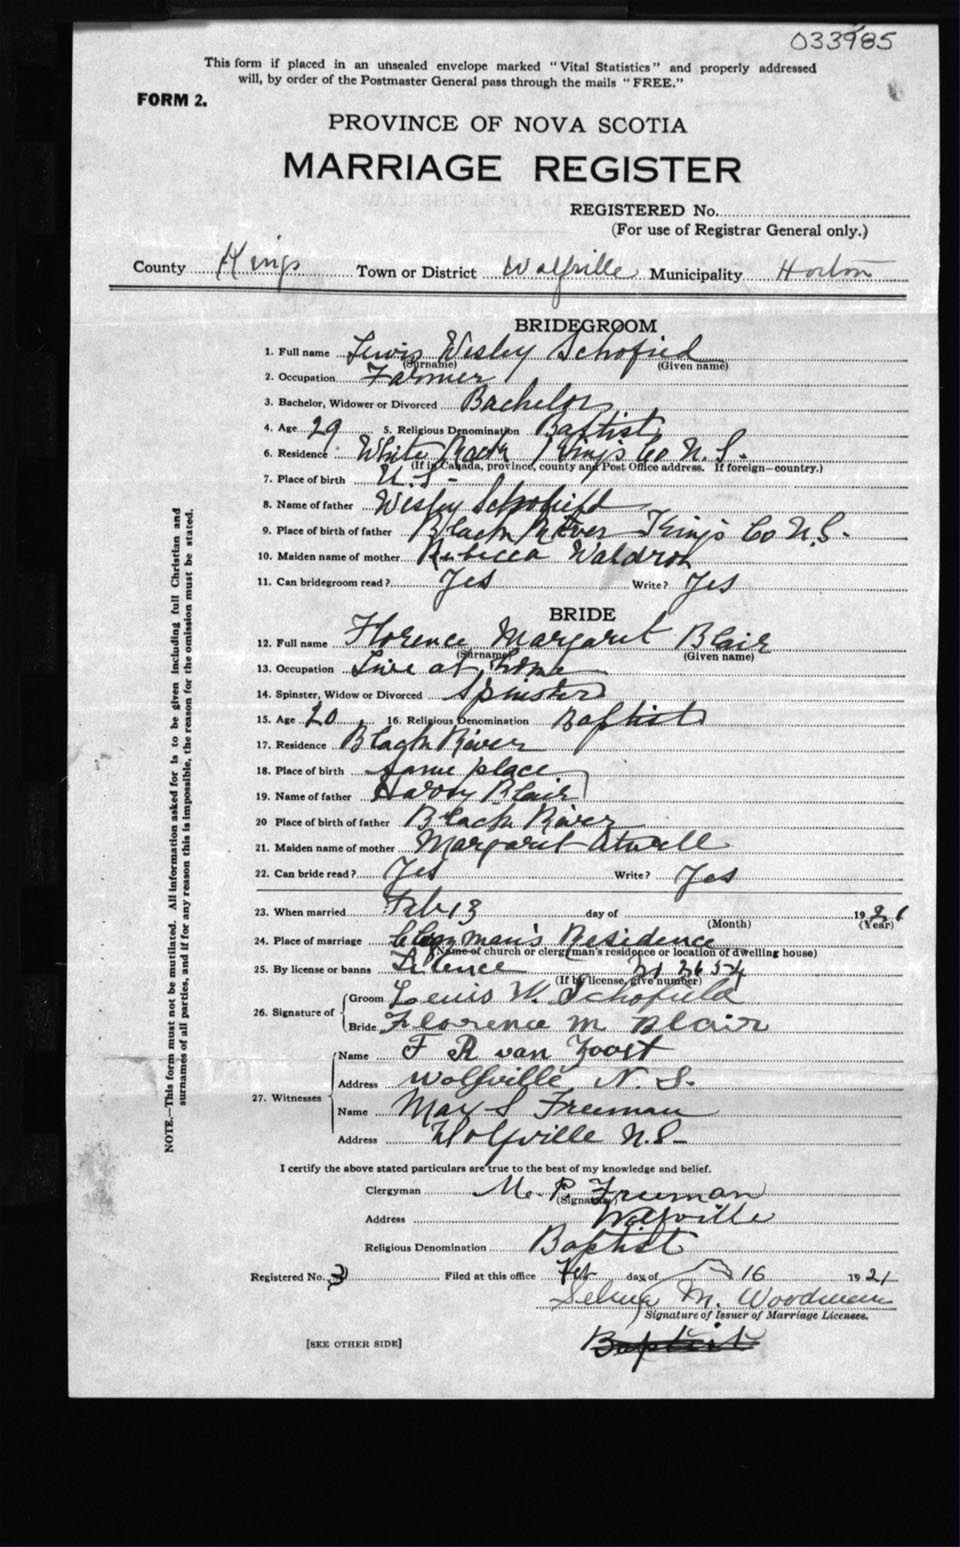 033985
This form if placed in an unsealed envelope marked "Vital Statistics" and properly addressed
will, by order of the Postmaster General pass through the mails "FREE."
FORM 2.
PROVINCE OF NOVA SCOTIA
MARRIAGE REGISTER
REGISTERED No.
(For use of Registrar General only.)
County Kings Town or District Wolfville Municipality Horton
BRIDEGROOM
1. Full name Lewis Wesley Schofied
(Surname) (Given name)
2. Occupation Farmer
3. Bachelor, Widower or Divorced Bachelor
4. Age 29 5. Religious Denomination Baptist
6. Residence White Rock Kings Co N. S.
(If in Canada, province, county and Post Office address. If foreign—country.)
7. Place of birth U. S.
8. Name of father Wesley Schofield
9. Place of birth of father Black River Kings Co N.S.
10. Maiden name of mother Rebecca Waldron
11. Can bridegroom read? Yes Write? Yes
BRIDE
12. Full name Florence Margaret Blair
(Surname) (Given name)
13. Occupation Live at home
14. Spinster, Widow or Divorced Spinster
15. Age 20 16. Religious Denomination Baptist
17. Residence Black River
18. Place of birth same place
19. Name of father Harvy Blair
20 Place of birth of father Black River
21. Maiden name of mother Margaret Atwell
22. Can bride read? Yes Write? Yes
23. When married Feb 13 day of 1921
(Month) (Year)
24. Place of marriage Clergyman's Residence
(Name of church or clergyman's residence or location of dwelling house)
25. By license or banns Licence 2654
(If by license, give number)
26. Signature of Groom Lewis W. Schofield
Bride Florence M Blair
27. Witnesses Name F R van Zoost
Address Wolfville N. S.
Name May S Freeman
Address Wolfville N.S.
I certify the above stated particulars are true to the best of my knowledge and belief.
Clergyman M. P. Freeman
(Signature)
Address Wolfville
Religious Denomination Baptist
Registered No. 3 Filed at this office Feb day of 16 1921
Selina M. Woodman
Signature of Issuer of Marriage Licenses.
[SEE OTHER SIDE]
Baptist
NOTE.—This form must not be mutilated. All information asked for is to be given including full Christian and
surnames of all parties, and if for any reason this is impossible, the reason for the omission must be stated.